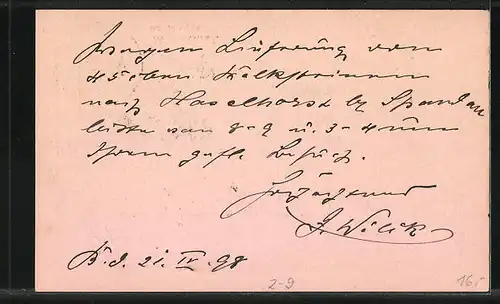 Wegen Lieferung von
45 cbm Kalksteinen
nach Haselhorst by Spandau
bitte von 8-9 u. 3-4 um
Ihren gefl. Besuch.
Hochachtend
J. Wilck
B. d. 21. IV. 98
2-9
16.-